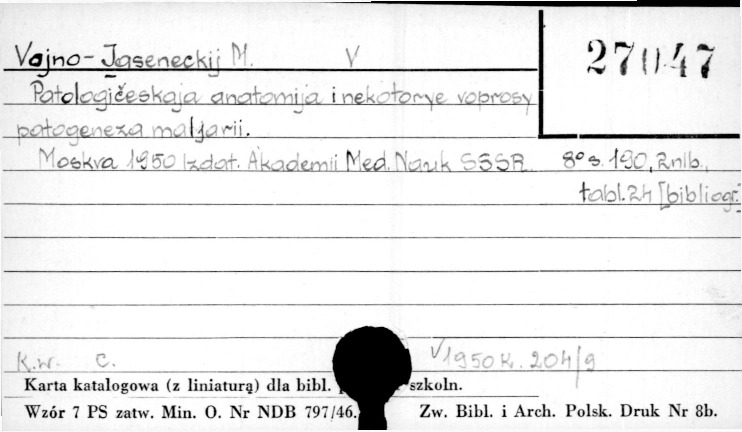 Vojno-Jaseneckij M. V
27047
Patologičeskaja anatomija i nekotorye voprosy
patogeneza maljarii.
Moskva 1950 Izdat. Akademii Med. Nauk SSSR 8° s. 190, 2nlb.,
tabl. 24 [bibliogr.]
K.w. C. V 1950 K. 204/9
Karta katalogowa (z liniaturą) dla bibl. szkoln.
Wzór 7 PS zatw. Min. O. Nr NDB 797/46. Zw. Bibl. i Arch. Polsk. Druk Nr 8b.